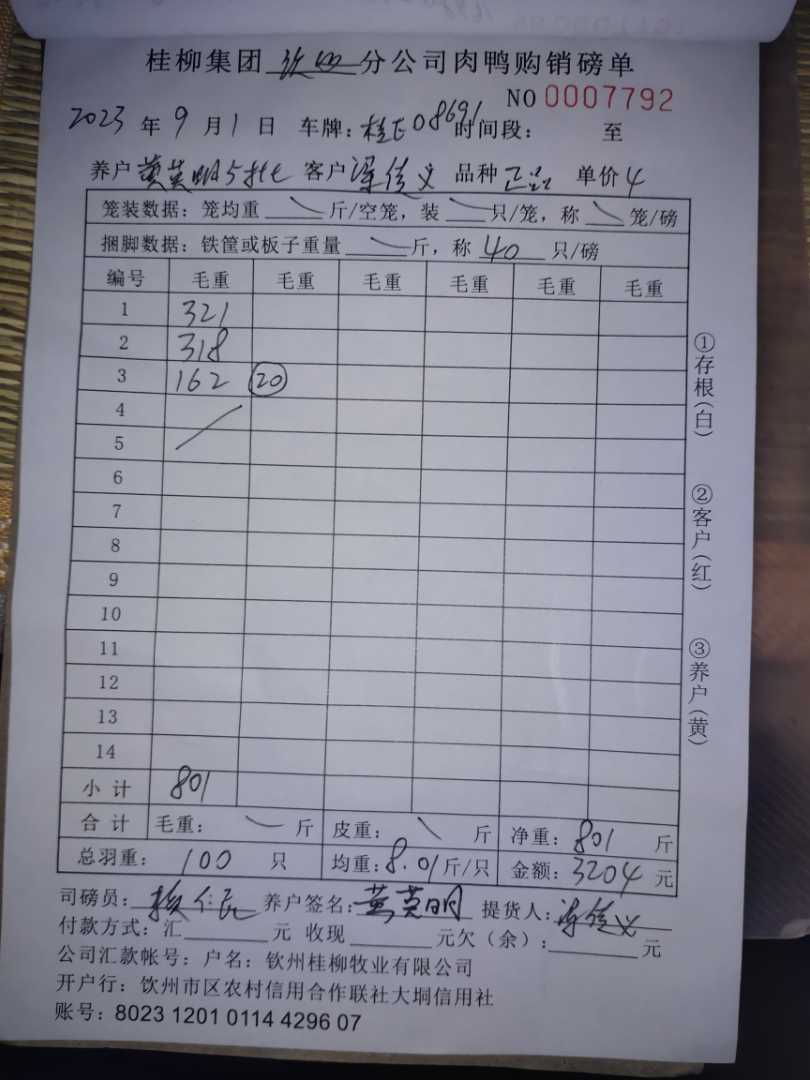 桂柳集团 钦州 分公司肉鸭购销磅单
NO 0007792
2023 年 9 月 1 日 车牌：桂E08691 时间段： 至
养户 黄英明 客户 品种 正品 单价 4
笼装数据：笼均重 \ 斤/空笼，装 \ 只/笼，称 \ 笼/磅
捆脚数据：铁筐或板子重量 \ 斤，称 40 只/磅
编号 毛重 毛重 毛重 毛重 毛重 毛重
1 321
2 318
3 162 ⑳
4
5
6
7
8
9
10
11
12
13
14
小 计 801
合 计 毛重： \ 斤 皮重： \ 斤 净重：801 斤
总羽重： 100 只 均重：8.01 斤/只 金额：3204 元
司磅员： 养户签名：黄英明 提货人：
付款方式：汇 元 收现 元欠（余）： 元
公司汇款帐号：户名：钦州桂柳牧业有限公司
开户行：饮州市区农村信用合作联社大垌信用社
账号：8023 1201 0114 4296 07
①存根（白）
②客户（红）
③养户（黄）